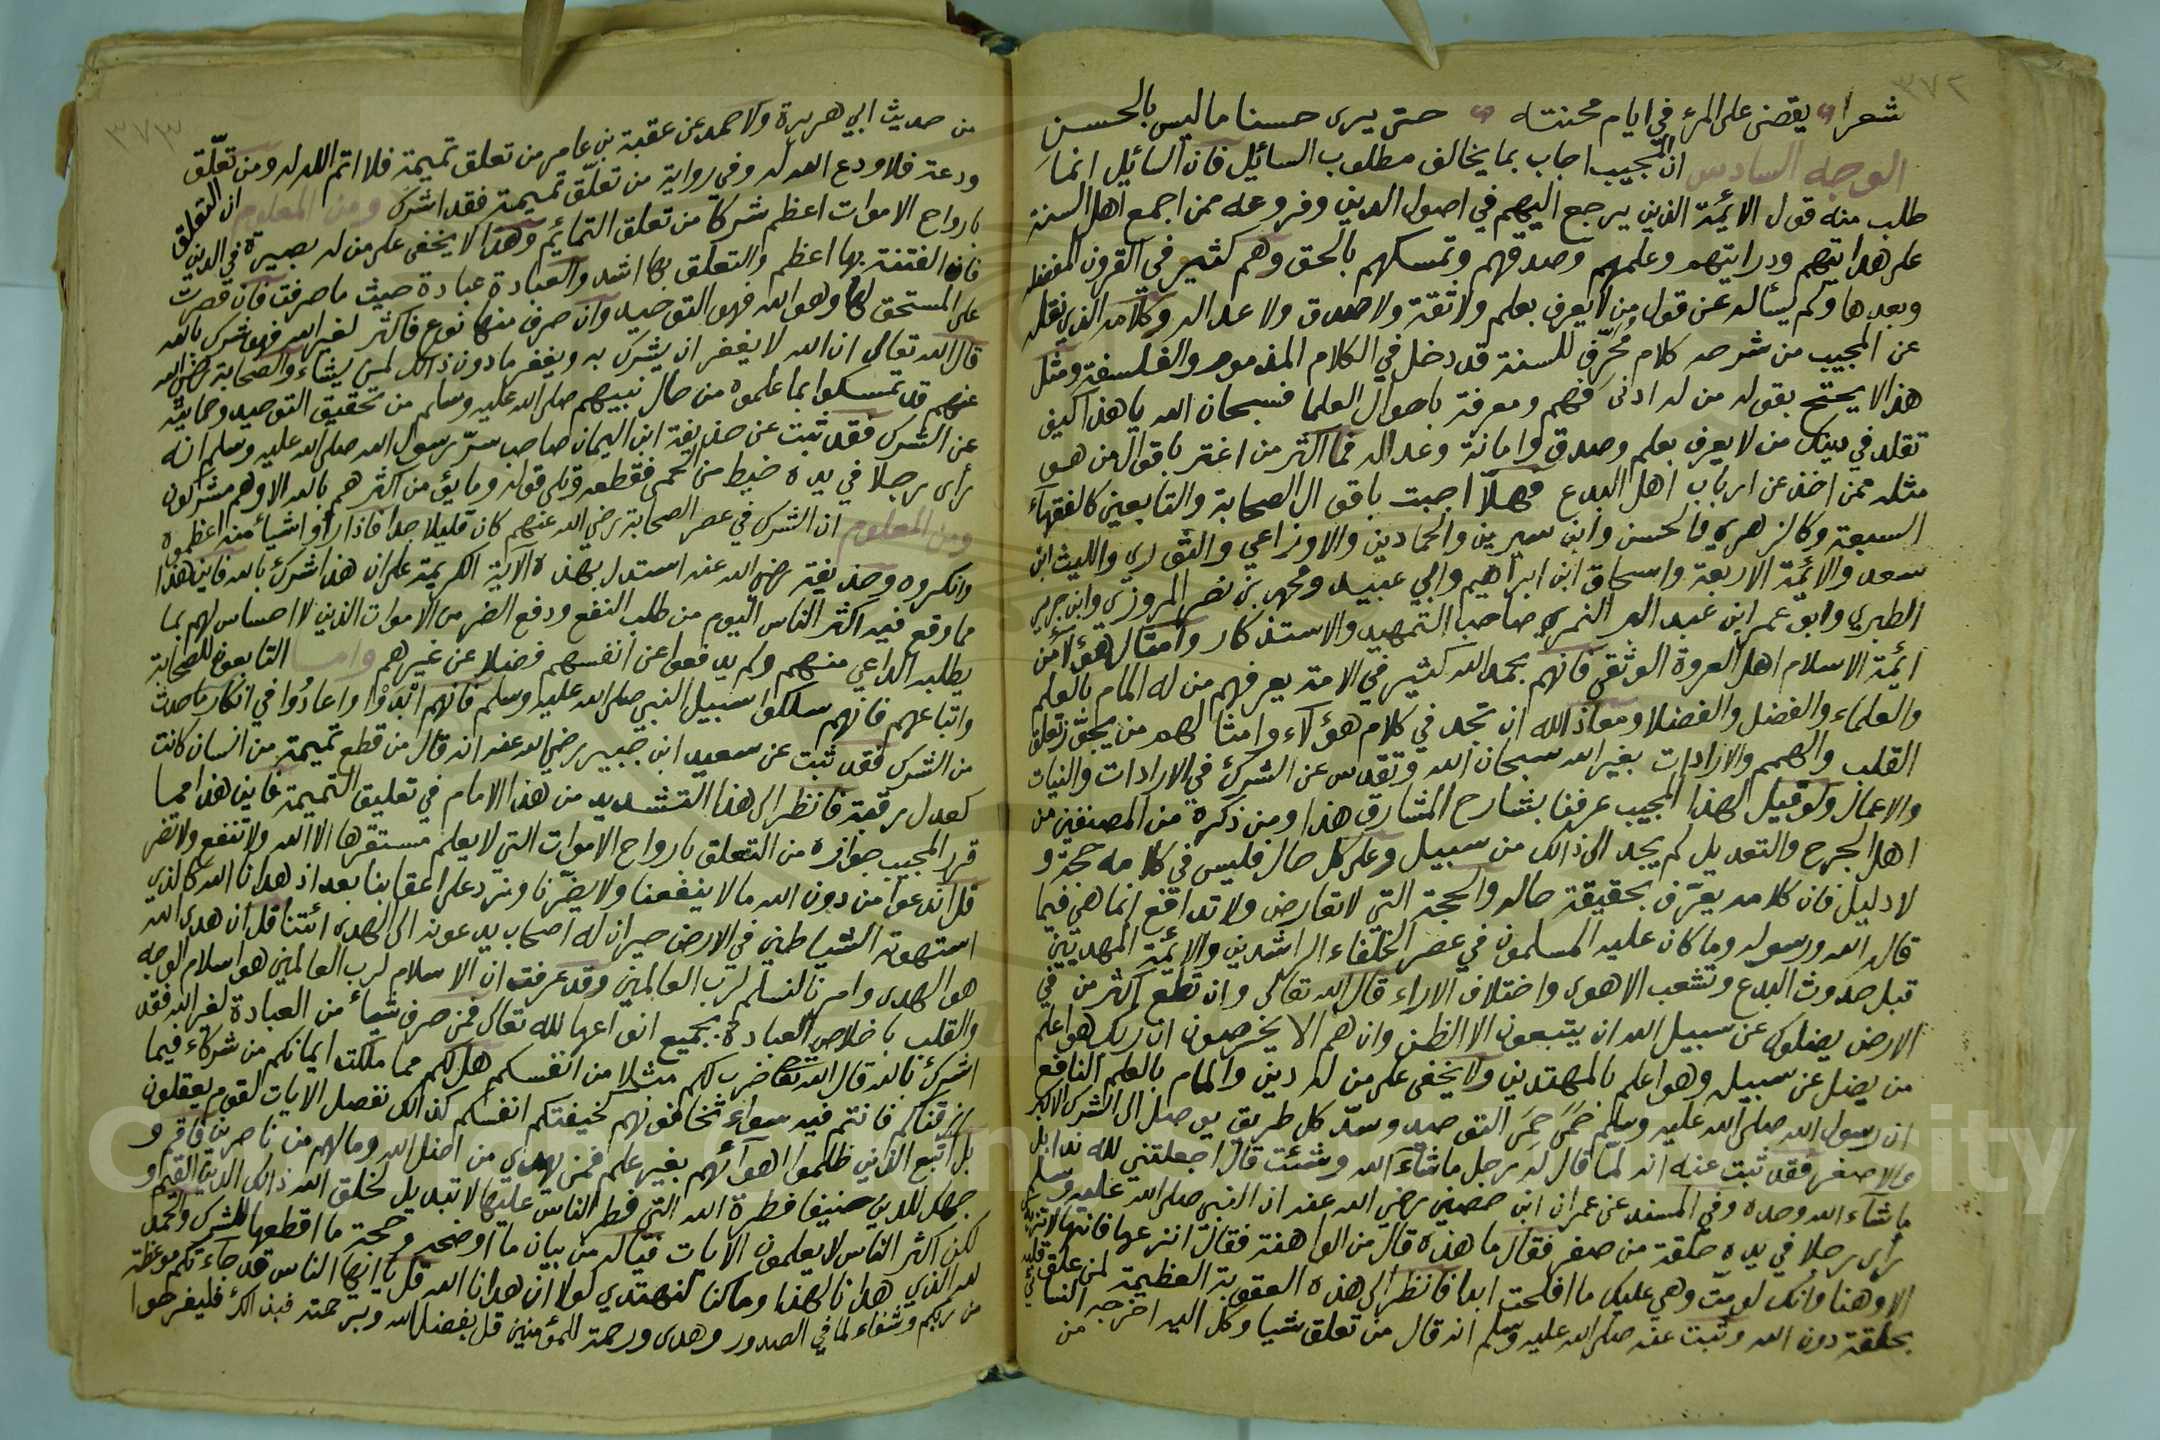 ٣٧٢
شعرا يقضى على المرء في ايام محنته حتى يرى حسنا ماليس بالحسن
الوجه السادس ان المجيب اجاب بما يخالف مطلوب السائل فان السائل انما
طلب منه قول الائمة الذين يرجع اليهم في اصول الدين وفروعه ممن اجمع اهل السنة
على هدايتهم ودرايتهم وعلمهم وصدقهم وتمسكهم بالحق وهم كثير في القرون المفضله
وبعدها ولم يسأله عن قول من لا يعرف بعلم ولا ثقة ولا صدق ولا عداله وكلامه الذي نقله
عن المجيب من شرحه كلام مُحرِّف للسنة قد دخل في الكلام المذموم والفلسفة ومثل
هذا لا يحتج بقوله من له ادنى فهم ومعرفة باحوال العلما فسبحان الله يا هذا كيف
تقلد في دينك من لا يعرف بعلم وصدق وامانة وعداله فما اكثر من اغتر باقوال من هو
مثله ممن اخذ عن ارباب اهل البدع فهلا اجبت باقوال الصحابة والتابعين كالفقهاء
السبعة وكالزهري والحسن وابن سيرين والحمادين والاوزاعي والثوري والليث ابن
سعد والائمة الاربعة واسحاق ابن ابراهيم وابي عبيد ومحمد بن نصر المروزي وابن جرير
الطبري وابو عمر ابن عبد البر النمري صاحب التمهيد والاستذكار وامثال هؤلاء من
ائمة الاسلام اهل العروة الوثقى فانهم بحمد الله كثير في الامة يعرفهم من له المام بالعلم
والعلماء والفضل والفضلا ومعاذ الله ان تجد في كلام هؤلاء وامثالهم من يجوّز تعلق
القلب والهمم والارادات بغير الله سبحان الله وتقدس عن الشرك في الارادات والنيات
والاعمال ولو قيل لهذا المجيب عرفنا بشارح المشارق هذا ومن ذكره من المصنفين من
اهل الجرح والتعديل لم يجد الى ذالك من سبيل وعلى كل حال فليس في كلامه حجة و
لا دليل فان كلامه يعرّف بحقيقة حاله والحجة التي لا تعارض ولا تدافع انما هي فيما
قال الله ورسوله وما كان عليه المسلمون في عصر الخلفاء الراشدين والائمة المهديين
قبل حدوث البدع وتشعب الاهوى واختلاف الاراء قال الله تعالى وان تطع اكثر من في
الارض يضلوك عن سبيل الله ان يتبعون الا الظن وان هم الا يخرصون ان ربك هو اعلم
من يضل عن سبيله وهو اعلم بالمهتدين ولا يخفى على من له دين والمام بالعلم النافع
ان رسول الله صلى الله عليه وسلم حَمَى حِمَى التوحيد وسدّ كل طريق يوصل الى الشرك الاكبر
والاصغر فقد ثبت عنه انه لما قال له رجل ما شاء الله وشئت قال اجعلتني لله ندا بل
ما شاء الله وحده وفي المسند عن عمران ابن حصين رضي الله عنه ان النبي صلى الله عليه وسلم
رأى رجلا في يده حلقة من صفر فقال ما هذه قال من الواهنة فقال انزعها فانها لا تزيدك
الا وهنا وانك لو متّ وهي عليك ما افلحت ابدا فانظر الى هذه العقوبة العظيمة لمن علق قلبه
بحلقة دون الله وثبت عنه صلى الله عليه وسلم انه قال من تعلق شيا وكل اليه اخرجه النسائي
من
٣٧٣
من حديث ابي هريرة ولاحمد عن عقبة بن عامر من تعلق تميمة فلا اتم الله له ومن تعلّق
ودعة فلا ودع الله له وفي رواية من تعلّق تميمة فقد اشرك ومن المعلوم ان التعلق
بارواح الاموات اعظم شركا من تعلق التمائيم وهذا لا يخفى على من له بصيرة في الدين
فان الفتنة بها اعظم والتعلق بها اشد والعبادة عبادة حيث ما صرفت فان قصرت
على المستحق لها وهو الله فهو التوحيد وان صرف منها نوع فاكثر لغير الله فهو شرك بالله
قال الله تعالى ان الله لا يغفر ان يشرك به ويغفر ما دون ذالك لمن يشاء والصحابة رضي الله
عنهم قد تمسكوا بما علموه من حال نبيهم صلى الله عليه وسلم من تحقيق التوحيد وحمايته
عن الشرك فقد ثبت عن حذيفة ابن اليمان صاحب سرّ رسول الله صلى الله عليه وسلم انه
رأى رجلا في يده خيط من الحمى فقطعه وتلى قوله وما يؤمن اكثرهم بالله الا وهم مشركون
ومن المعلوم ان الشرك في عصر الصحابة رضي الله عنهم كان قليلا جدا فاذا رأوا شياء منه اعظموه
وانكروه وحذيفة رضي الله عنه استدل بهذه الآية الكريمة على ان هذا شرك بالله فاين هذا
مما وقع فيه اكثر الناس اليوم من طلب النفع ودفع الضر من الاموات الذين لا احساس لهم بما
يطلبه الداعي منهم ولم يدفعوا عن انفسهم فضلا عن غيرهم واما التابعون للصحابة
واتباعهم فانهم سلكوا سبيل النبي صلى الله عليه وسلم فانهم ابْدَوْا واعادُوا في انكار ما حدث
من الشرك فقد ثبت عن سعيد ابن جبير رضي الله عنه انه قال من قطع تميمة من انسان كانت
كعدل رقبة فانظر الى هذا التشديد من هذا الامام في تعليق التميمة فاين هذا مما
قرر المجيب جوازه من التعلق بارواح الاموات التي لا يعلم مستقرها الا الله ولا تنفع ولا تضر
قل اندعوا من دون الله ما لا ينفعنا ولا يضرّنا ونرد على اعقابنا بعد اذ هدانا الله كالذي
استهوته الشياطين في الارض حيران له اصحاب يدعونه الى الهدى ائتنا قل ان هدى الله
هو الهدى وامرنا لنسلم لرب العالمين وقد عرفت ان الاسلام لرب العالمين هو اسلام الوجه
والقلب باخلاص العبادة بجميع انواعها لله تعالى فمن صرف شياء من العبادة لغير الله فقد
اشرك بالله قال الله تعالى ضرب لكم مثلا من انفسكم هل لكم مما ملكت ايمانكم من شركاء فيما
رزقناكم فانتم فيه سواء تخافونهم كخيفتكم انفسكم كذالك نفصل الايات لقوم يعقلون
بل اتبع الذين ظلموا اهواءهم بغير علم فمن يهدي من اضل الله وما لهم من ناصرين فاقم و
جهك للدين حنيفا فطرة الله التي فطر الناس عليها لا تبديل لخلق الله ذالك الدين القيم و
لكن اكثر الناس لا يعلمون الايات فياله من بيان ما اوضحه وحجة ما اقطعها للشرك والحمد
لله الذي هدانا لهذا وما كنا لنهتدي لولا ان هدانا الله قل يا ايها الناس قد جاءتكم موعظة
من ربكم وشفاء لما في الصدور وهدى ورحمة للمؤمنين قل بفضل الله وبرحمته فبذالك فليفرحوا